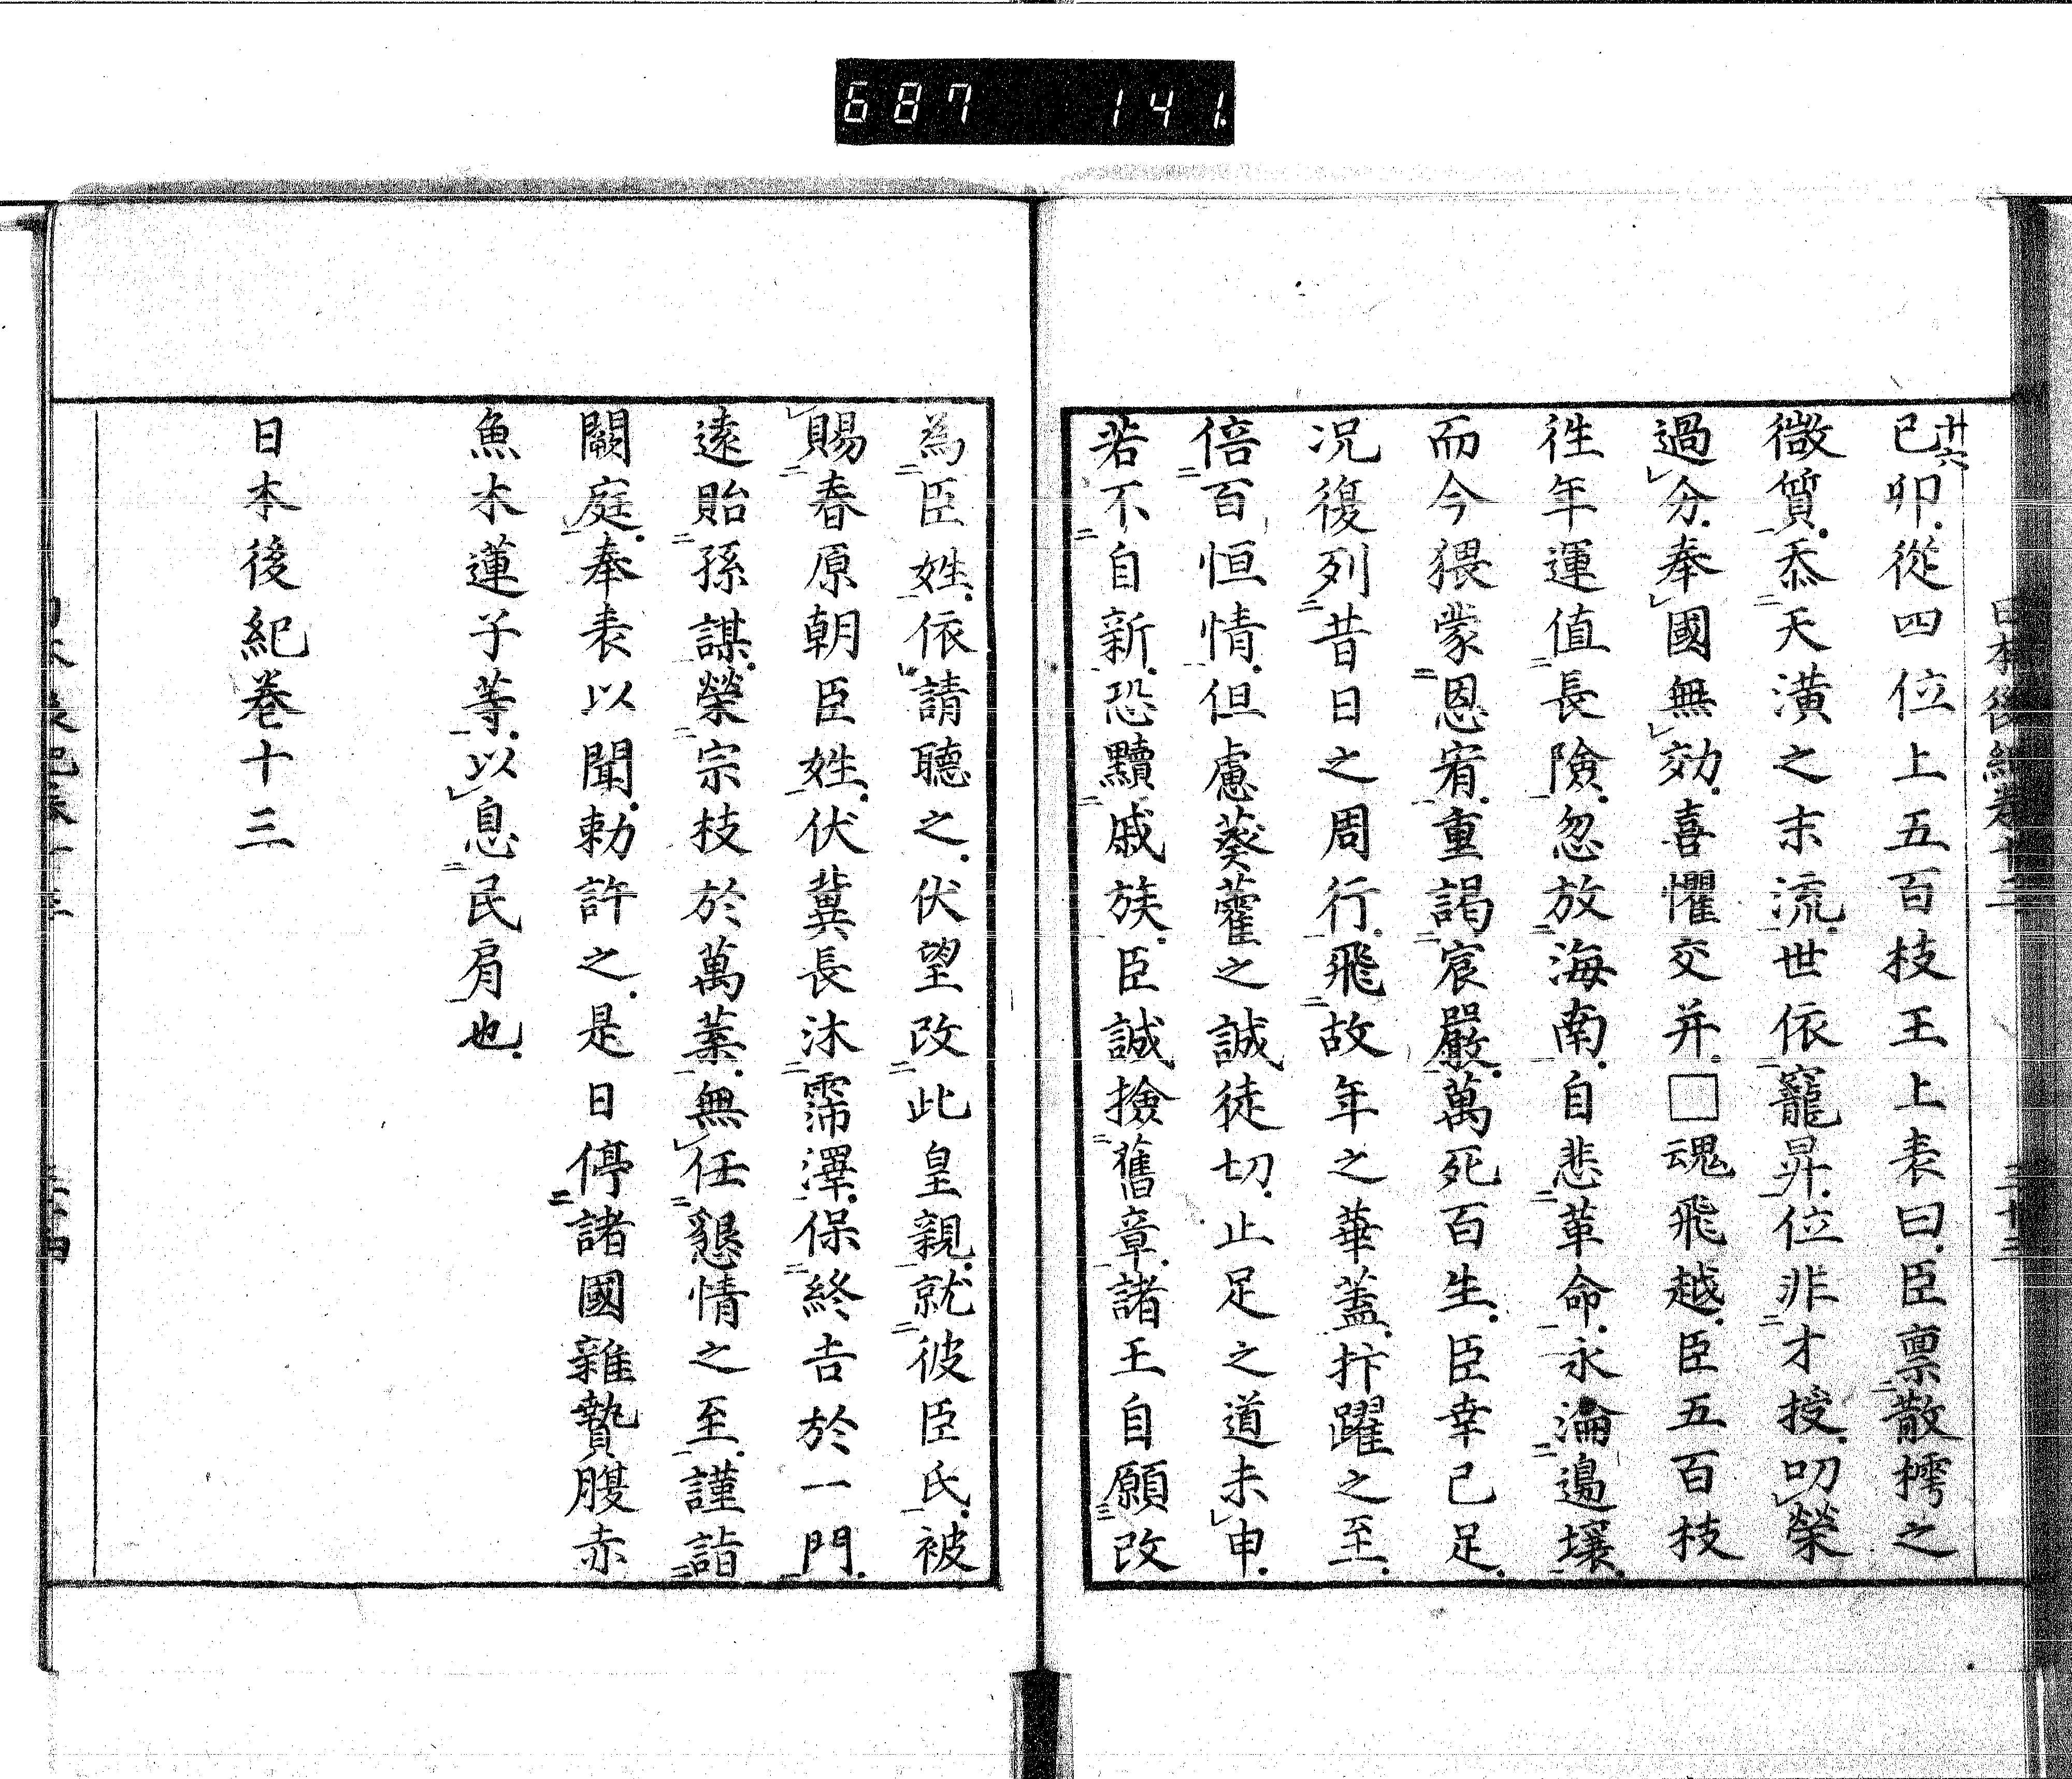 687 141
日本後紀卷十三 三十三
廿六
己卯從四位上五百枝王上表曰臣禀散樗之
微質忝天潢之末流世依寵昇位非才授叨榮
過分奉國無効喜懼交并□魂飛越臣五百枝
徃年運值長險忽放海南自悲革命永淪邊壤
而今猥蒙恩宥重謁宸嚴萬死百生臣幸已足
况復列昔日之周行飛故年之華蓋抃躍之至
倍百恒情但慮葵藿之誠徒切止足之道未申
若不自新恐黷戚族臣誠撿舊章諸王自願改
為臣姓依請聽之伏望改此皇親就彼臣氏被
賜春原朝臣姓伏冀長沐霈澤保終吉於一門
遠貽孫謀榮宗枝於萬葉無任懇情之至謹詣
闕庭奉表以聞勅許之是日停諸國雜贄腹赤
魚木蓮子等以息民肩也
日本後紀卷十三